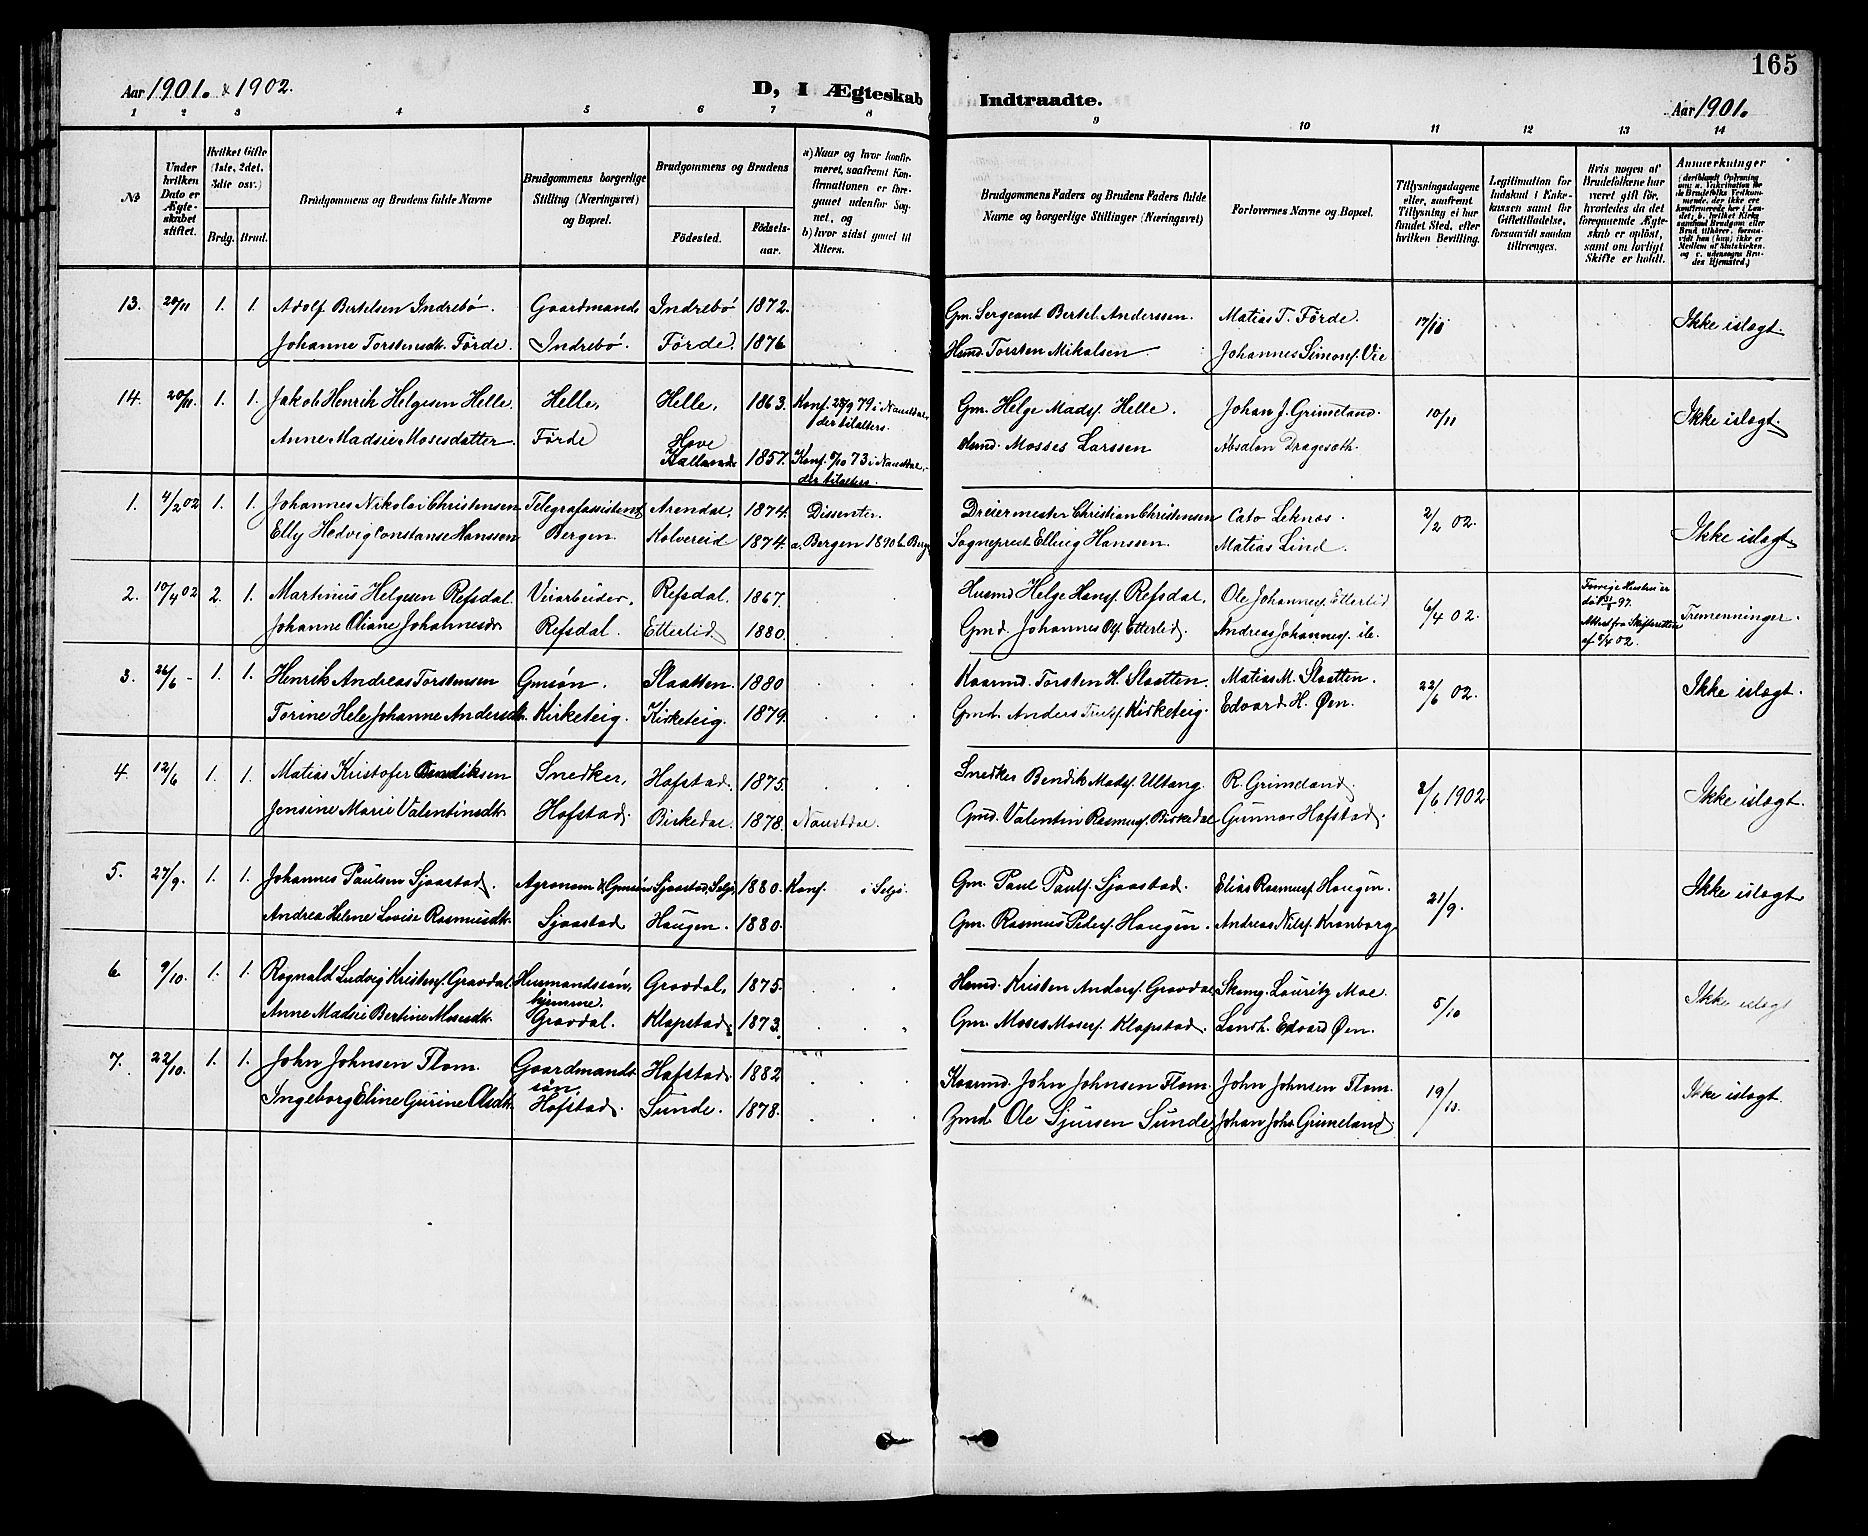 165
Aar 1901. & 1902.
D, I Ægteskab Indtraadte.
Aar 1901.
1 2 3 4 5 6 7 8 9 10 11 12 13 14
№
Under hvilken Dato er Ægteskabet stiftet.
Hvilket Gifte (1ste, 2det, 3die osv.)
Brdg. Brud.
Brudgommens og Brudens fulde Navne
Brudgommens borgerlige Stilling (Næringsvei) og Bopæl.
Brudgommens og Brudens
Födested. Födselsaar.
a) Naar og hvor konfirmeret, saafremt Konfirmationen er foregaaet udenfor Sognet, og
b) hvor sidst gaaet til Alters.
Brudgommens Faders og Brudens Faders fulde Navne og borgerlige Stillinger (Næringsvei)
Forlovernes Navne og Bopæl.
Tillysningsdagene eller, saafremt Tillysning ei har fundet Sted, efter hvilken Bevilling.
Legitimation for Indskud i Enkekassen samt for Giftetilladelse, forsaavidt saadan tiltrænges.
Hvis nogen af Brudefolkene har været gift för, hvorledes da det foregaaende Ægteskab er oplöst, samt om lovligt Skifte er holdt.
Anmærkninger
13. 20/11 1. 1. Adolf Bertelsen Indrebö. Gaardmand Indrebö 1872. Gm. Sergeant Bertel Anderssen. Matias T. Förde. 17/11 Ikke islægt.
Johanne Torstensdt. Förde. Indrebö. Förde. 1876 Husmd. Torsten Mikalsen Johannes Simonss. Vie
14. 20/11. 1. 1. Jakob Henrik Helgesen Helle. Helle. Helle. 1863. Konf. 28/9 79 i Naustdal, der til alters. Gm. Helge Madss. Helle. Johan J. Grimeland. 10/11 Ikke islægt.
Anne Madsie Mosesdatter. Förde Hove 1857. Konf. 5/10 73 i Naustdal, der til alters. Husmd. Mosses Larssen Absalon Dragesæth.
1. 4/2 02 1. 1. Johannes Nikolai Christensen Telegrafassistent Arendal. 1874. Dissenter. Dreiermester Christian Christensen Cato Leknæs. 2/2 02. Ikke islægt.
Elly Hedvig Constanse Hanssen Bergen. Kolvereid 1874. a. Bergen 1890 b. Berg. Sogneprest Elling Hanssen. Matias Lind.
2. 10/4 02 2. 1. Martinus Helgesen Refsdal. Veiarbeider. Refsdal. 1867. Husmd Helge Hanss. Refsdal. Ole Johanness. Etterlid 6/4 02. Forrige Hustru er död 31/5 97. Attest fra Skifteretten af 5/4 02. Tremenninger.
Johanne Oliane Johannesdt. Refsdal. Etterlid 1880. Gmd. Johannes Ols. Etterlid. Andreas Johanness. ib.
3. 26/6 - 1. 1. Henrik Andreas Torstensen Gmsön. Slaatten. 1880 Kaarmd. Torsten H. Slaatten. Matias M. Slaatten. 22/6 02. Ikke islægt.
Torine Hele Johanne Andersdt. Kirketeig. Kirketeig. 1879. Gmd. Anders Kirketeig. Edvard H. Øen.
4. 12/6 1. 1. Matias Kristofer Bendiksen Snedker, Hafstad. 1875. Snedker Bendik Madss. Ultang. R. Grimeland. 8/6 1902. Ikke islægt.
Jensine Marie Valentinsdt. Hafstad. Birkedal. 1878. Naustdal. Gmd. Valentin Rasmuss. Birkedal Gunnar Hafstad.
5. 27/9. 1. 1. Johannes Paulsen Sjaastad. Agronom & Gmsön Sjaastad, Selje. 1880. Konf. i Selje. Gm. Paul Paulss. Sjaastad. Elias Rasmuss. Haugen. 21/9. Ikke islægt
Andrea Helene Lovise Rasmusdt. Sjaastad Haugen. 1880. Gm. Rasmus Peders. Haugen. Andreas Nilss. Kronborg
6. 9/10. 1. 1. Rognald Ludvig Kristens. Gravdal. Husmandssön, hjemme. Gravdal. 1875. Husmd. Kristen Anders. Gravdal Skomg. Lauritz Moe. 5/10 Ikke islægt
Anne Madsie Bertine Mosesdt. Gravdal. Klopstad. 1873. Gm. Moses Moses. Klopstad. Landh. Edvard Øen.
7. 22/10. 1. 1. John Johnsen Flom. Gaardmandssön Hafstad. 1882 Kaarmd. John Johnsen Flom. John Johnsen Flom. 19/10. Ikke islægt.
Ingeborg Eline Gurine Olsdt. Hafstad. Sunde. 1878. Gmd. Ole Sjursen Sunde. Johan Johs. Grimeland.